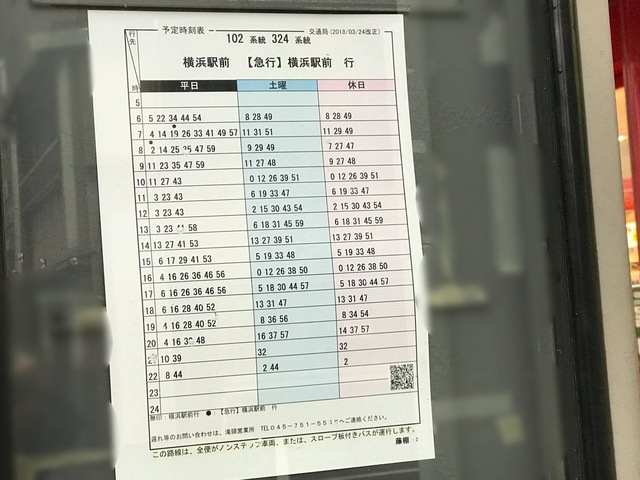 予定時刻表
交通局(2018/03/24改正)
行先
102 系統 324 系統
横浜駅前 【急行】横浜駅前 行
時 平日 土曜 休日
5
6 5 22 34 44 54 8 28 49 8 28 49
7 4 14 19 26 33 41 49 57 11 31 51 11 29 49
8 2 14 25 35 47 59 9 29 49 7 27 47
9 11 23 35 47 59 11 27 48 9 27 48
10 11 27 43 0 12 26 39 51 0 12 26 39 51
11 3 23 43 6 19 33 47 6 19 33 47
12 3 23 43 2 15 30 43 54 2 15 30 43 54
13 3 23 58 6 18 31 45 59 6 18 31 45 59
14 13 27 41 53 13 27 39 51 13 27 39 51
15 6 17 29 41 53 5 19 33 48 5 19 33 48
16 4 16 26 36 46 56 0 12 26 38 50 0 12 26 38 50
17 6 16 26 36 46 56 5 18 30 44 57 5 18 30 44 57
18 6 16 28 40 52 13 31 47 13 31 47
19 4 16 28 40 52 8 36 56 8 34 54
20 4 16 48 16 37 57 14 37 57
10 39 32 32
22 8 44 2 44 2
23
24
無印:横浜駅前行 ●:【急行】横浜駅前 行
遅れ等のお問い合わせは、滝頭営業所 TEL045-751-551へご連絡ください。
この路線は、全便がノンステップ車両、または、スロープ板付きバスが運行します。
藤棚 2